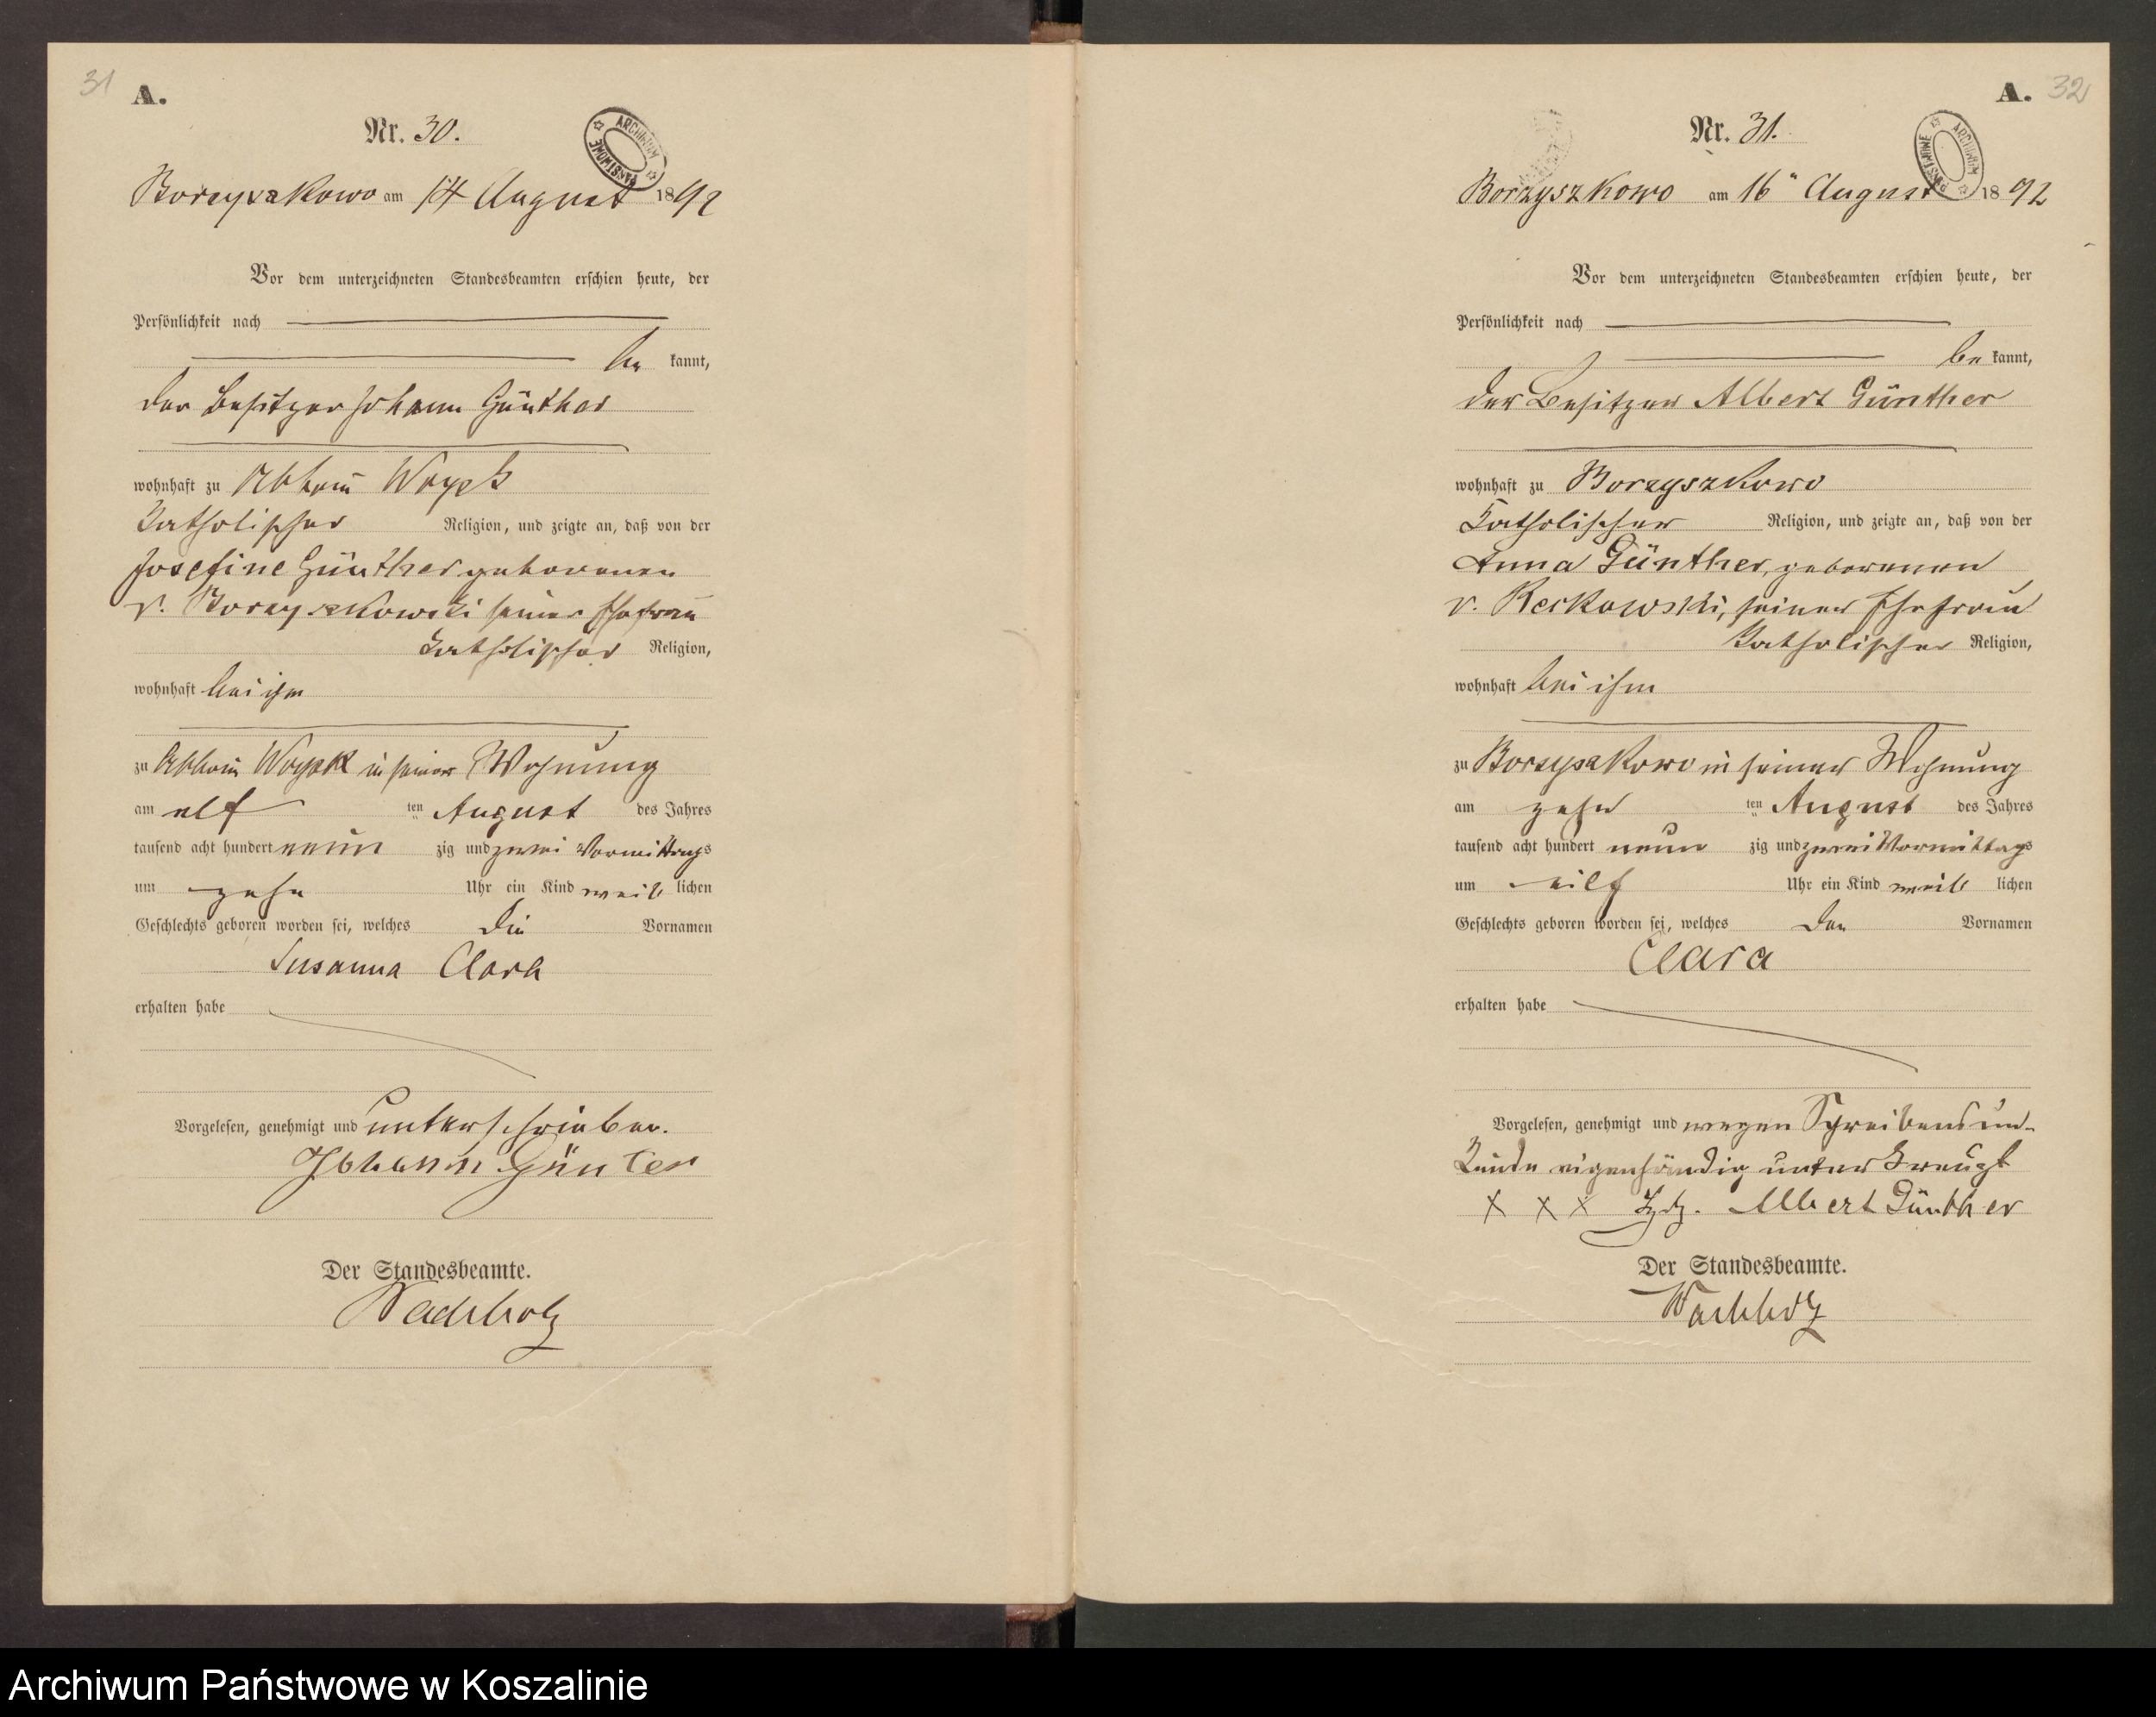 31
A.
Nr. 30.
ARCHIWUM PAŃSTWOWE
Borzyszkowo am 14 August 1892
Vor dem unterzeichneten Standesbeamten erschien heute, der
Persönlichkeit nach
be kannt,
der Besitzer Johann Günther
wohnhaft zu Abbau
katholischer Religion, und zeigte an, daß von der
Josefine Günther geborenen
v. Borzyszkowski seiner Ehefrau
katholischer Religion,
wohnhaft bei ihm
zu Abbau in seiner Wohnung
am elf ten August des Jahres
tausend acht hundert neun zig und zwei Vormittags
um zehn Uhr ein Kind weib lichen
Geschlechts geboren worden sei, welches die Vornamen
Susanna Clara
erhalten habe
Vorgelesen, genehmigt und unterschrieben.
Johann Günter
Der Standesbeamte.
Wachholz
A. 32
Nr. 31.
ARCHIWUM PAŃSTWOWE
Borzyszkowo am 16" August 1892
Vor dem unterzeichneten Standesbeamten erschien heute, der
Persönlichkeit nach
be kannt,
der Besitzer Albert Günther
wohnhaft zu Borzyszkowo
katholischer Religion, und zeigte an, daß von der
Anna Günther, geborenen
v. Reckowski, seiner Ehefrau
katholischer Religion,
wohnhaft bei ihm
zu Borzyszkowo in seiner Wohnung
am zehn ten August des Jahres
tausend acht hundert neun zig und zwei Vormittags
um eilf Uhr ein Kind weib lichen
Geschlechts geboren worden sei, welches den Vornamen
Clara
erhalten habe
Vorgelesen, genehmigt und wegen Schreibensun-
kunde eigenhändig unterkreuzt
x x x Hdz. Albert Günther
Der Standesbeamte.
Wachholz
Archiwum Państwowe w Koszalinie